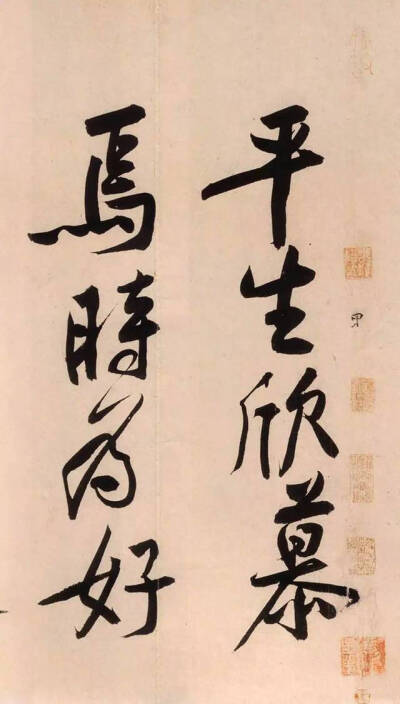 平生欣慕
焉時為好